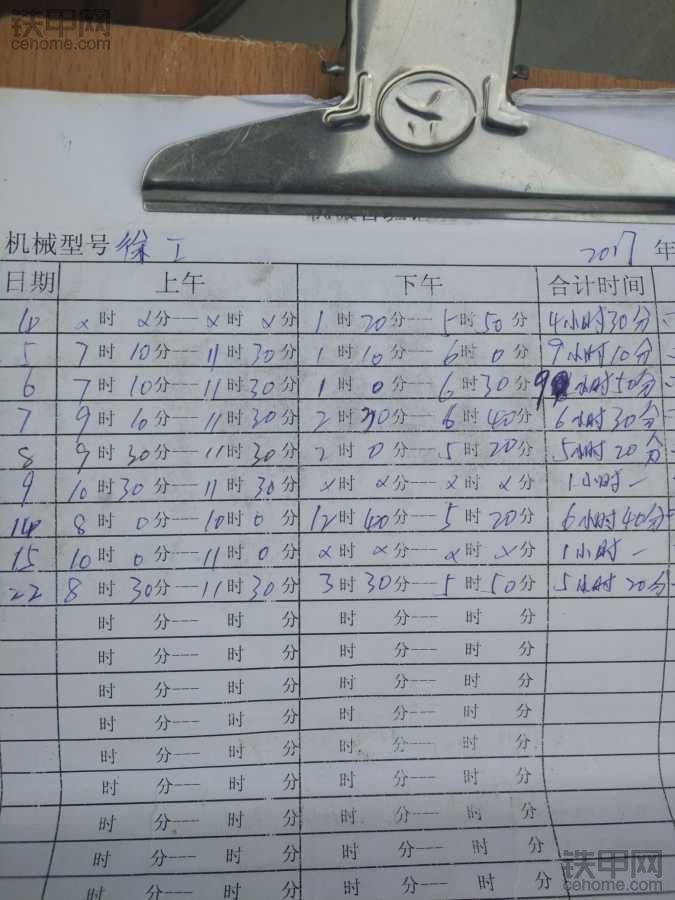 铁甲网
cehome.com
机械型号 徐工 2017 年
日期 上午 下午 合计时间
4 x时 x分---x时 x分 1时20分---5时50分 4小时30分
5 7时10分---11时30分 1时10分---6时0分 9小时10分
6 7时10分---11时30分 1时0分---6时30分 9小时50分
7 9时10分---11时30分 2时30分---6时40分 6小时30分
8 9时30分---11时30分 2时0分---5时20分 5小时20分
9 10时30分---11时30分 x时 x分---x时 x分 1小时一
14 8时0分---10时0分 12时40分---5时20分 6小时40分
15 10时0分---11时0分 x时 x分---x时 x分 1小时一
22 8时30分---11时30分 3时30分---5时50分 5小时20分
时 分--- 时 分 时 分--- 时 分
时 分--- 时 分 时 分--- 时 分
时 分--- 时 分 时 分--- 时 分
时 分--- 时 分 时 分--- 时 分
时 分--- 时 分 时 分--- 时 分
时 分--- 时 分 时 分--- 时 分
时 分--- 时 分 时 分--- 时 分
时 分--- 时 分 时 分--- 时 分
时 分--- 时 分 时 分--- 时 分
铁甲网
cehome.com